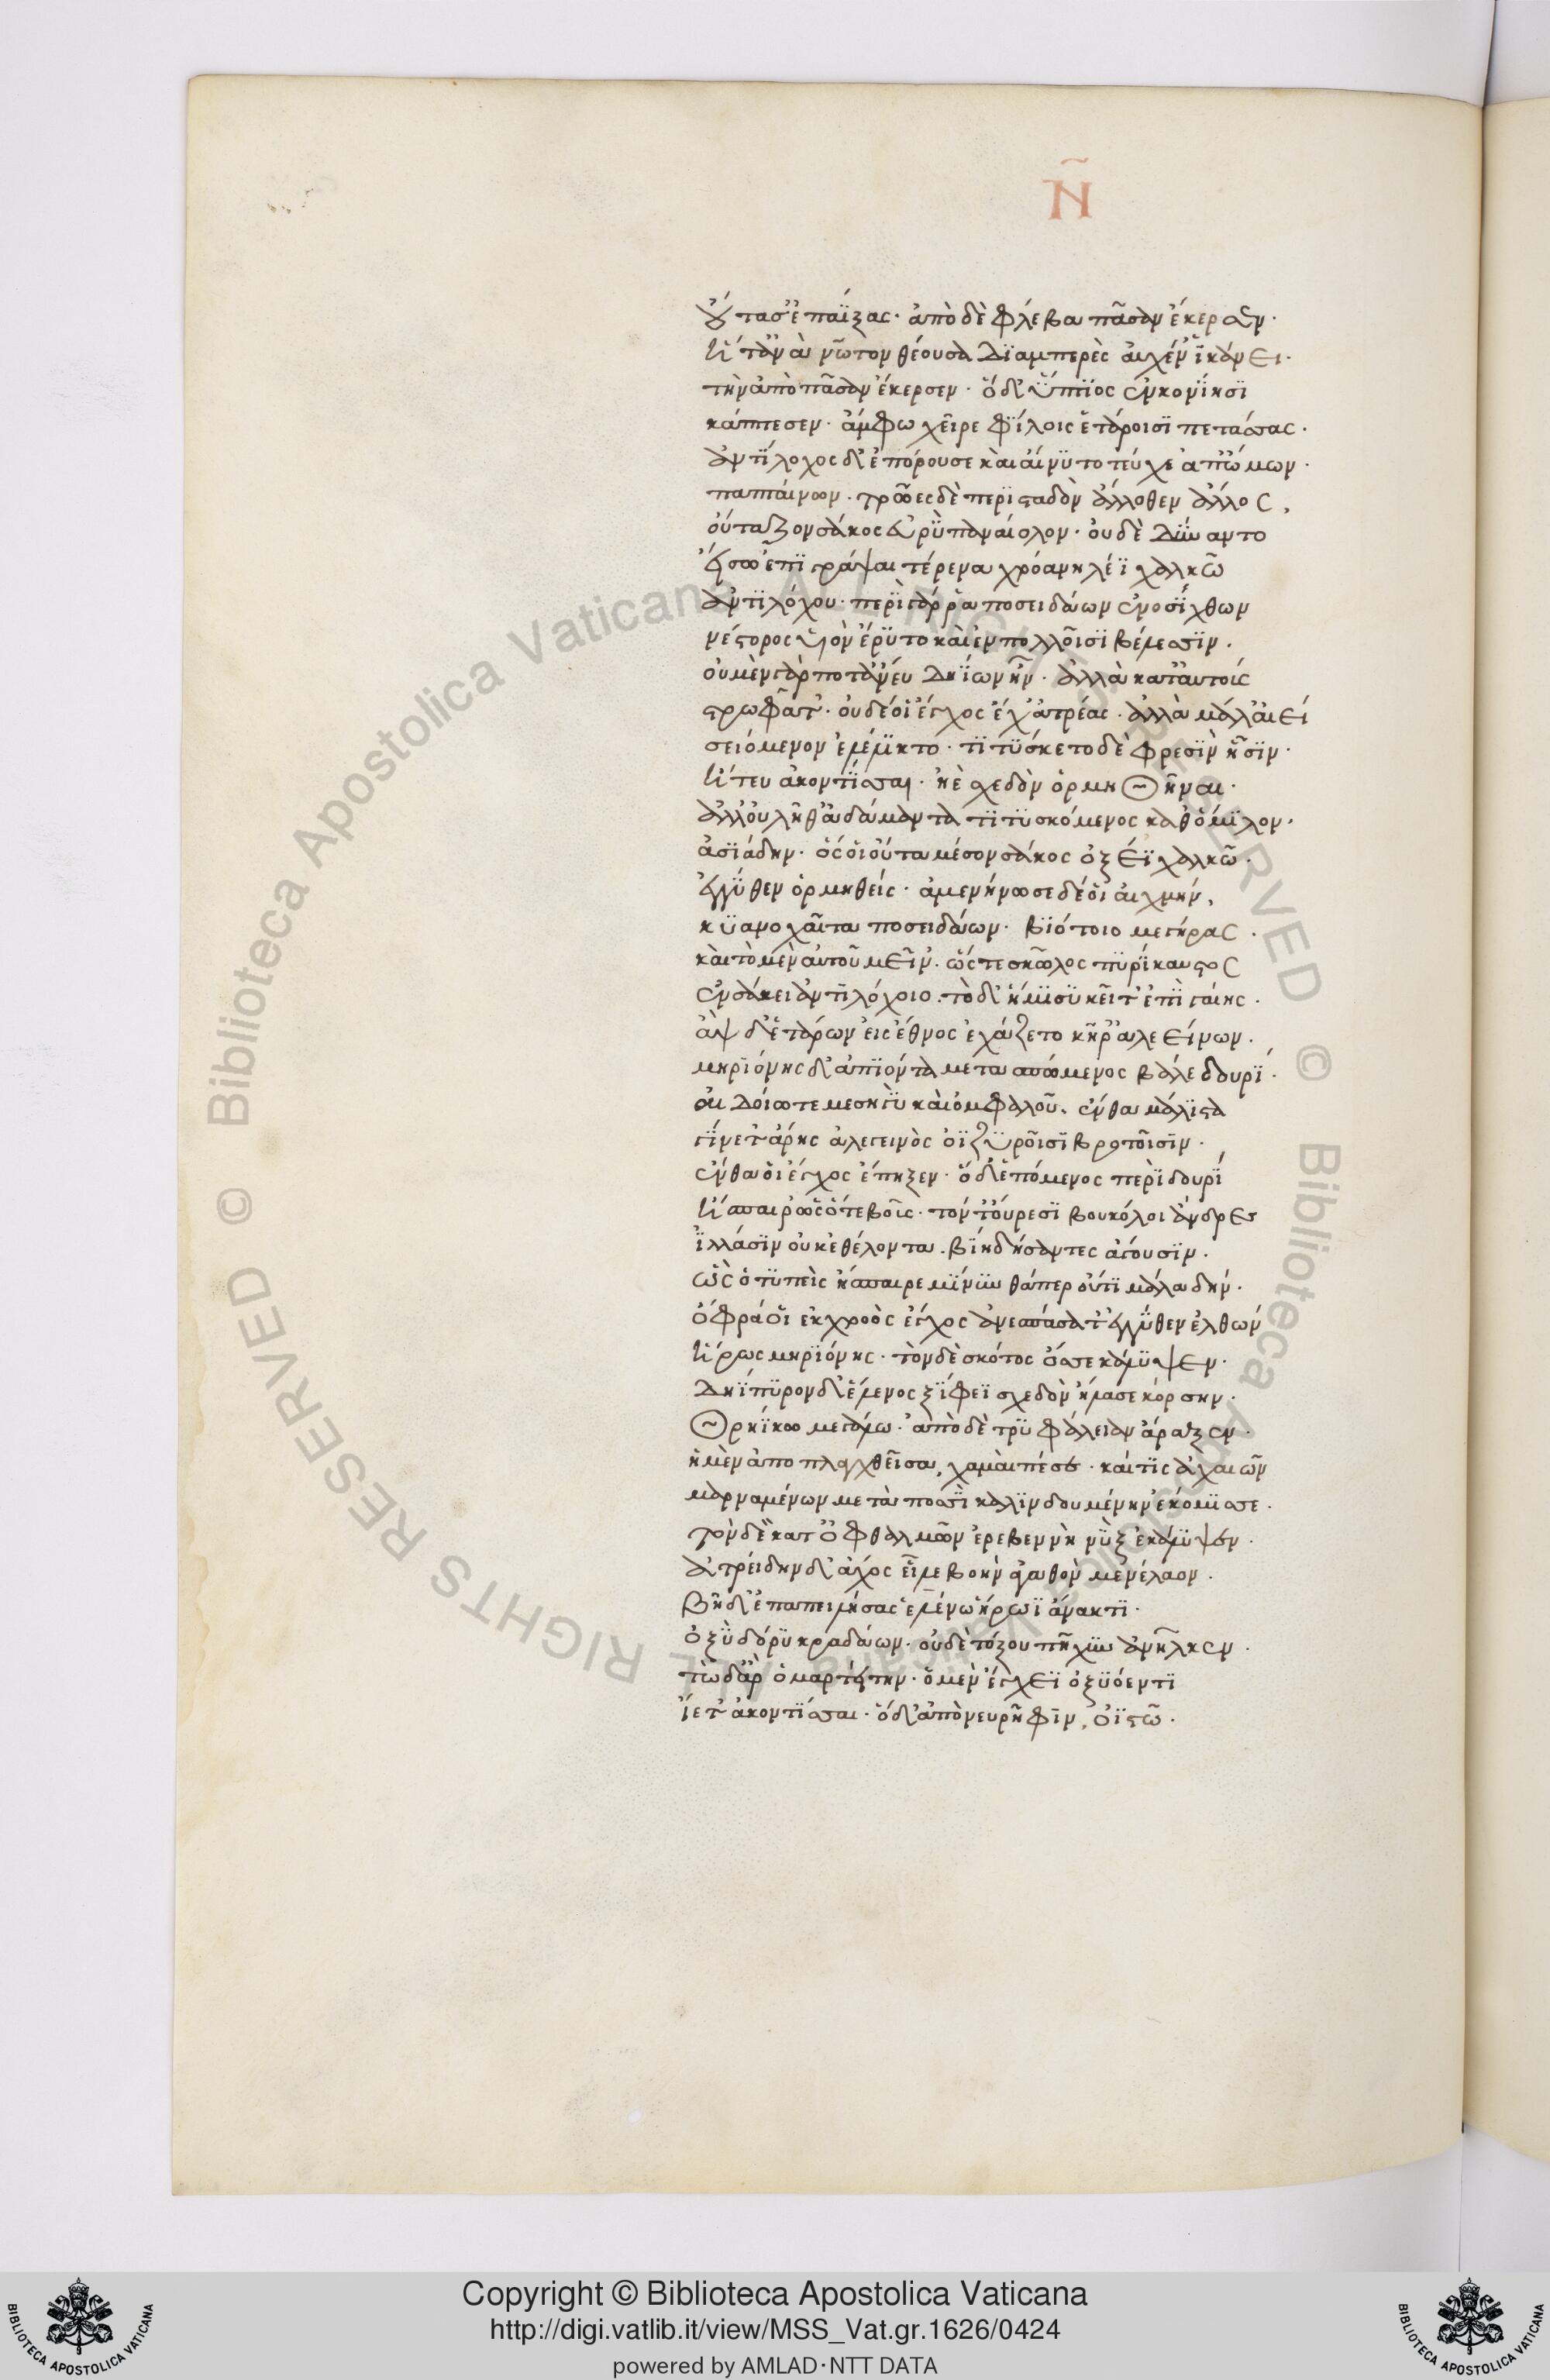 Ν
οὔτασ' ἐπαΐξας· ἀπὸ δὲ φλέβα πᾶσαν ἔκερσεν·
ἥ τ' ἀνὰ νῶτον θέουσα διαμπερὲς αὐχέν' ἱκάνει·
τὴν ἀπὸ πᾶσαν ἔκερσεν· ὃ δ' ὕπτιος ἐν κονίησι
κάππεσεν· ἄμφω χεῖρε φίλοις ἑτάροισι πετάσσας·
ἀντίλοχος δ' ἐπόρουσε καὶ αἴνυτο τεύχε' ἀπ' ὤμων·
παπταίνων· τρῶες δὲ περισταδὸν ἄλλοθεν ἄλλος,
οὔταζον σάκος εὐρὺ παναίολον· οὐδὲ δύναντο
εἴσω ἐπιγράψαι τέρενα χρόα νηλέϊ χαλκῶ
ἀντιλόχου· περὶ γάρ ῥα ποσειδάων ἐνοσίχθων
νέστορος υἱὸν ἔρυτο καὶ ἐν πολλοῖσι βέλεσσιν·
οὐ μὲν γάρ ποτ' ἄνευ δηΐων ἦν· ἀλλὰ κατ' αὐτοὺς
στρωφᾶτ'· οὐδέ οἱ ἔγχος ἔχ' ἀτρέμας· ἀλλὰ μάλ' αἰεὶ
σειόμενον ἐλέλικτο· τιτύσκετο δὲ φρεσὶν ἧσιν·
ἤ τευ ἀκοντίσσαι· ἠὲ σχεδὸν ὁρμηθῆναι·
ἀλλ' οὐ λῆθ' ἀδάμαντα τιτυσκόμενος καθ' ὅμιλον·
ἀσιάδην· ὅς οἱ οὖτα μέσον σάκος ὀξέϊ χαλκῶ·
ἐγγύθεν ὁρμηθείς· ἀμενήνωσε δέ οἱ αἰχμήν,
κυανοχαῖτα ποσειδάων· βιότοιο μεγήρας·
καὶ τὸ μὲν αὐτοῦ μεῖν'· ὥς τε σκῶλος πυρίκαυστος
ἐν σάκει ἀντιλόχοιο· τὸ δ' ἥμισυ κεῖτ' ἐπὶ γαίης·
ἂψ δ' ἑτάρων εἰς ἔθνος ἐχάζετο κῆρ' ἀλεείνων·
μηριόνης δ' ἀπιόντα μετασπόμενος βάλε δουρί·
αἰδοίων τε μεσηγὺ καὶ ὀμφαλοῦ· ἔνθα μάλιστα
γίνετ' ἄρης ἀλεγεινὸς ὀϊζυροῖσι βροτοῖσιν·
ἔνθά οἱ ἔγχος ἔπηξεν· ὃ δ' ἑπόμενος περὶ δουρὶ
ἤσπαιρ' ὡς ὅτε βοῦς· τόν τ' οὔρεσι βουκόλοι ἄνδρες
ἰλλάσιν οὐκ ἐθέλοντα βίῃ δήσαντες ἄγουσιν·
ὣς ὁ τυπεὶς ἤσπαιρε μίνυνθά περ οὔτι μάλα δήν·
ὄφρά οἱ ἐκ χροὸς ἔγχος ἀνεσπάσατ' ἐγγύθεν ἐλθὼν
ἥρως μηριόνης· τὸν δὲ σκότος ὄσσε κάλυψεν·
δηΐπυρον δ' ἕλενος ξίφεϊ σχεδὸν ἤλασε κόρσην·
Θρηϊκίω μεγάλω· ἀπὸ δὲ τρυφάλειαν ἄραξεν·
ἡ μὲν ἀποπλαγχθεῖσα, χαμαὶ πέσε· καί τις ἀχαιῶν
μαρναμένων μετὰ ποσσὶ καλινδουμένην ἐκόμισσε·
τὸν δὲ κατ' ὀφθαλμῶν ἐρεβεννὴ νὺξ ἐκάλυψεν·
ἀτρείδην δ' ἄχος εἷλε βοὴν ἀγαθὸν μενέλαον·
βῆ δ' ἐπαπειλήσας ἑλένω ἥρωϊ ἄνακτι·
ὀξὺ δόρυ κραδάων· ὁ δὲ τόξου πῆχυν ἄνελκεν·
τὼ δ' ἄρ' ὁμαρτήτην· ὁ μὲν ἔγχεϊ ὀξυόεντι
ἵετ' ἀκοντίσσαι· ὁ δ' ἀπὸ νευρῆφιν, ὀϊστῶ·
© Biblioteca Apostolica Vaticana ALL RIGHTS RESERVED
© Biblioteca Apostolica Vaticana ALL RIGHTS RESERVED
BIBLIOTECA APOSTOLICA VATICANA
Copyright © Biblioteca Apostolica Vaticana
http://digi.vatlib.it/view/MSS_Vat.gr.1626/0424
powered by AMLAD·NTT DATA
BIBLIOTECA APOSTOLICA VATICANA